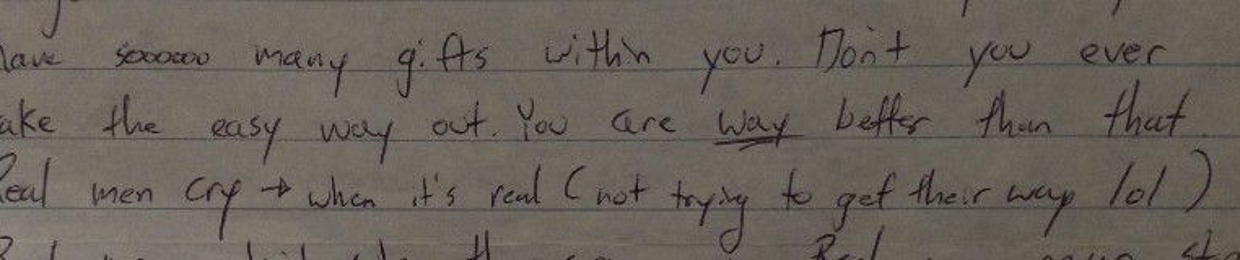 have soooooo many gifts within you. Don't you ever
take the easy way out. You are way better than that.
Real men cry → when it's real (not trying to get their way lol)